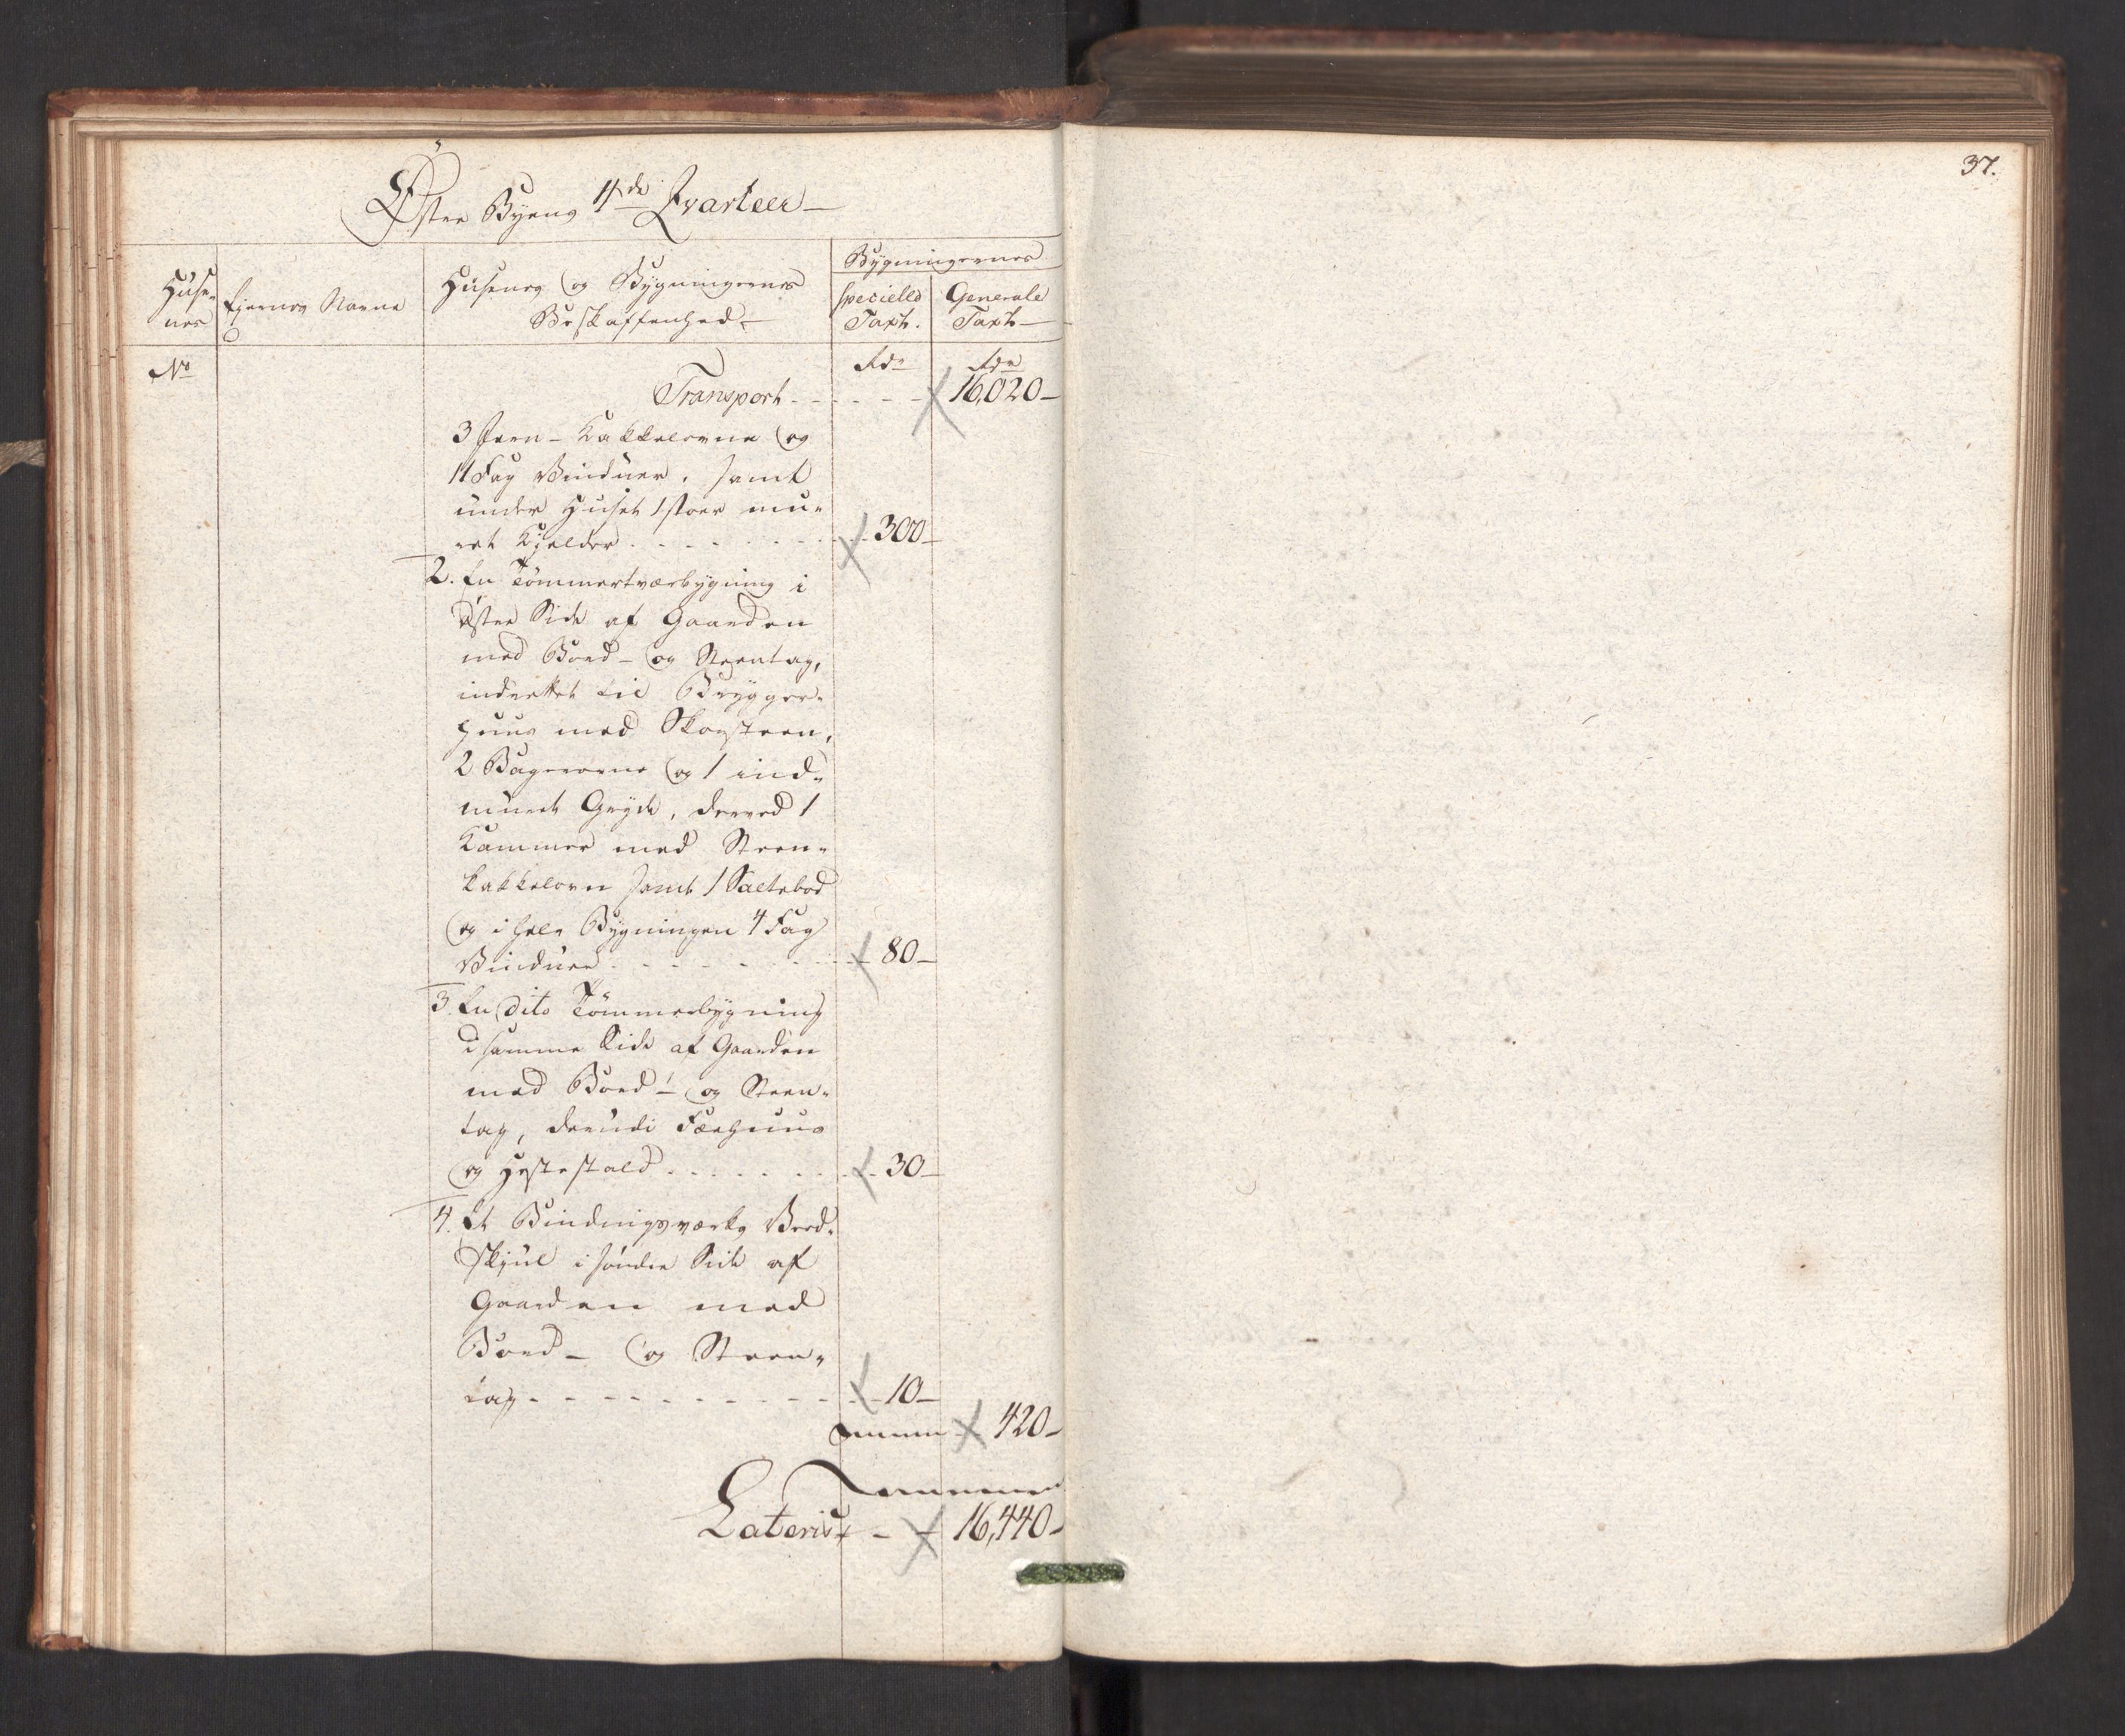 Østre Byens 4de Qvarteer
Huse-
nes
Ejernes Navne
Husenes og Bygningernes
Beskaffenhed
Bygningernes
specielle
Taxt.
Generale
Taxt
No
Rdr
Rdr
Transport 16,020
3 Jern-Kakkelovne og
11 Fag Vinduer, samt
under Huset 1 stoer mu-
ret Kjelder 300
2. En Tømmertværbygning i
Østre Side af Gaarden
med Bord- og Steentag,
indrettet til Brygger-
huus med Skorsteen,
2 Bagerovne og 1 ind-
muret Gryde, derved 1
Kammer med Steen-
kakkelovn samt 1 Saltebod
og i hele Bygningen 4 Fag
Vinduer 80
3. En dito Tømmerbygning
i samme Side af Gaarden
med Bord- og Steen-
tag, derudi Fæehuus
og Hestestald 30
4. Et Bindingsværks Ved-
skjul i søndre Side af
Gaarden med
Bord- og Steen-
tag 10
420
Lateris 16,440
37.